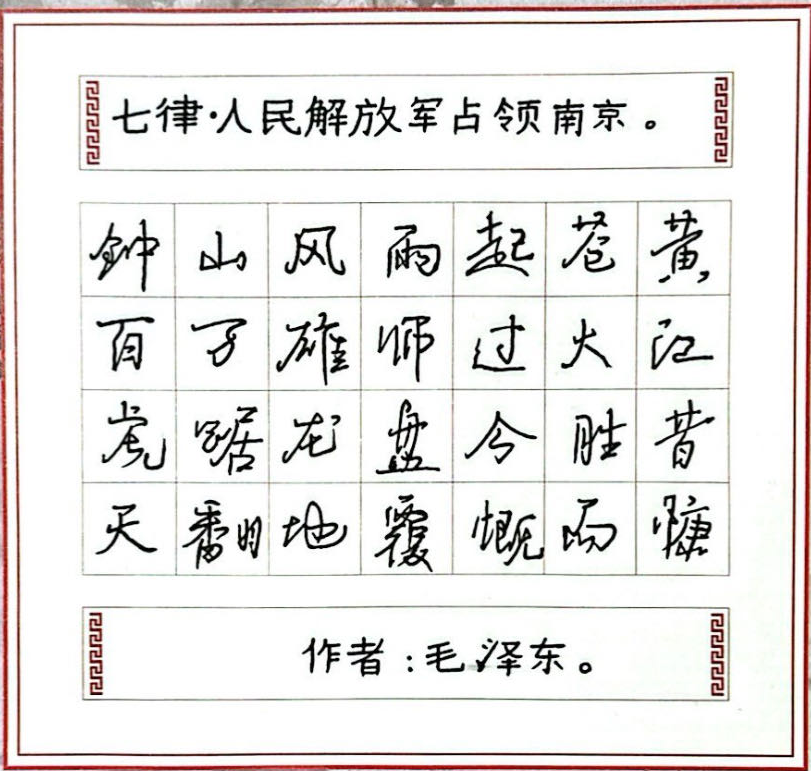 七律·人民解放军占领南京。
钟山风雨起苍黄
百万雄师过大江
虎踞龙盘今胜昔
天翻地覆慨而慷
作者:毛泽东。